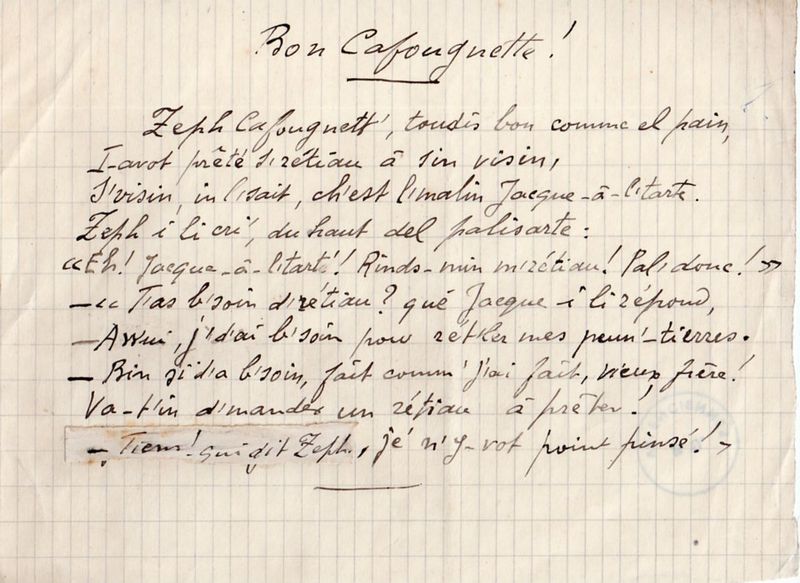 Bon Cafougnette!
Zeph Cafougnett', toudis bon comme el pain,
I-avot prêté s'rétiau à sin visin,
S'visin, in l'sait, ch'est l'malin Jacque-à-l'tarte.
Zeph i li cri', du haut del palisarte:
«Eh! Jacque-à-l'tarte! Rinds-min m'rétiau! Pal'donc!»
—« T'as b'soin d'rétiau? qué Jacque-i li répond,
—Awui, j'd'ai b'soin pour rét'ler mes peun'-tierres.
— Bin si d'a b'soin, fait comm' j'ai fait, vieux frère!
Va-t'in d'mander un rétiau à prêter!
— Tiens! qui dit Zeph, jé n'y-vot point pinsé!»